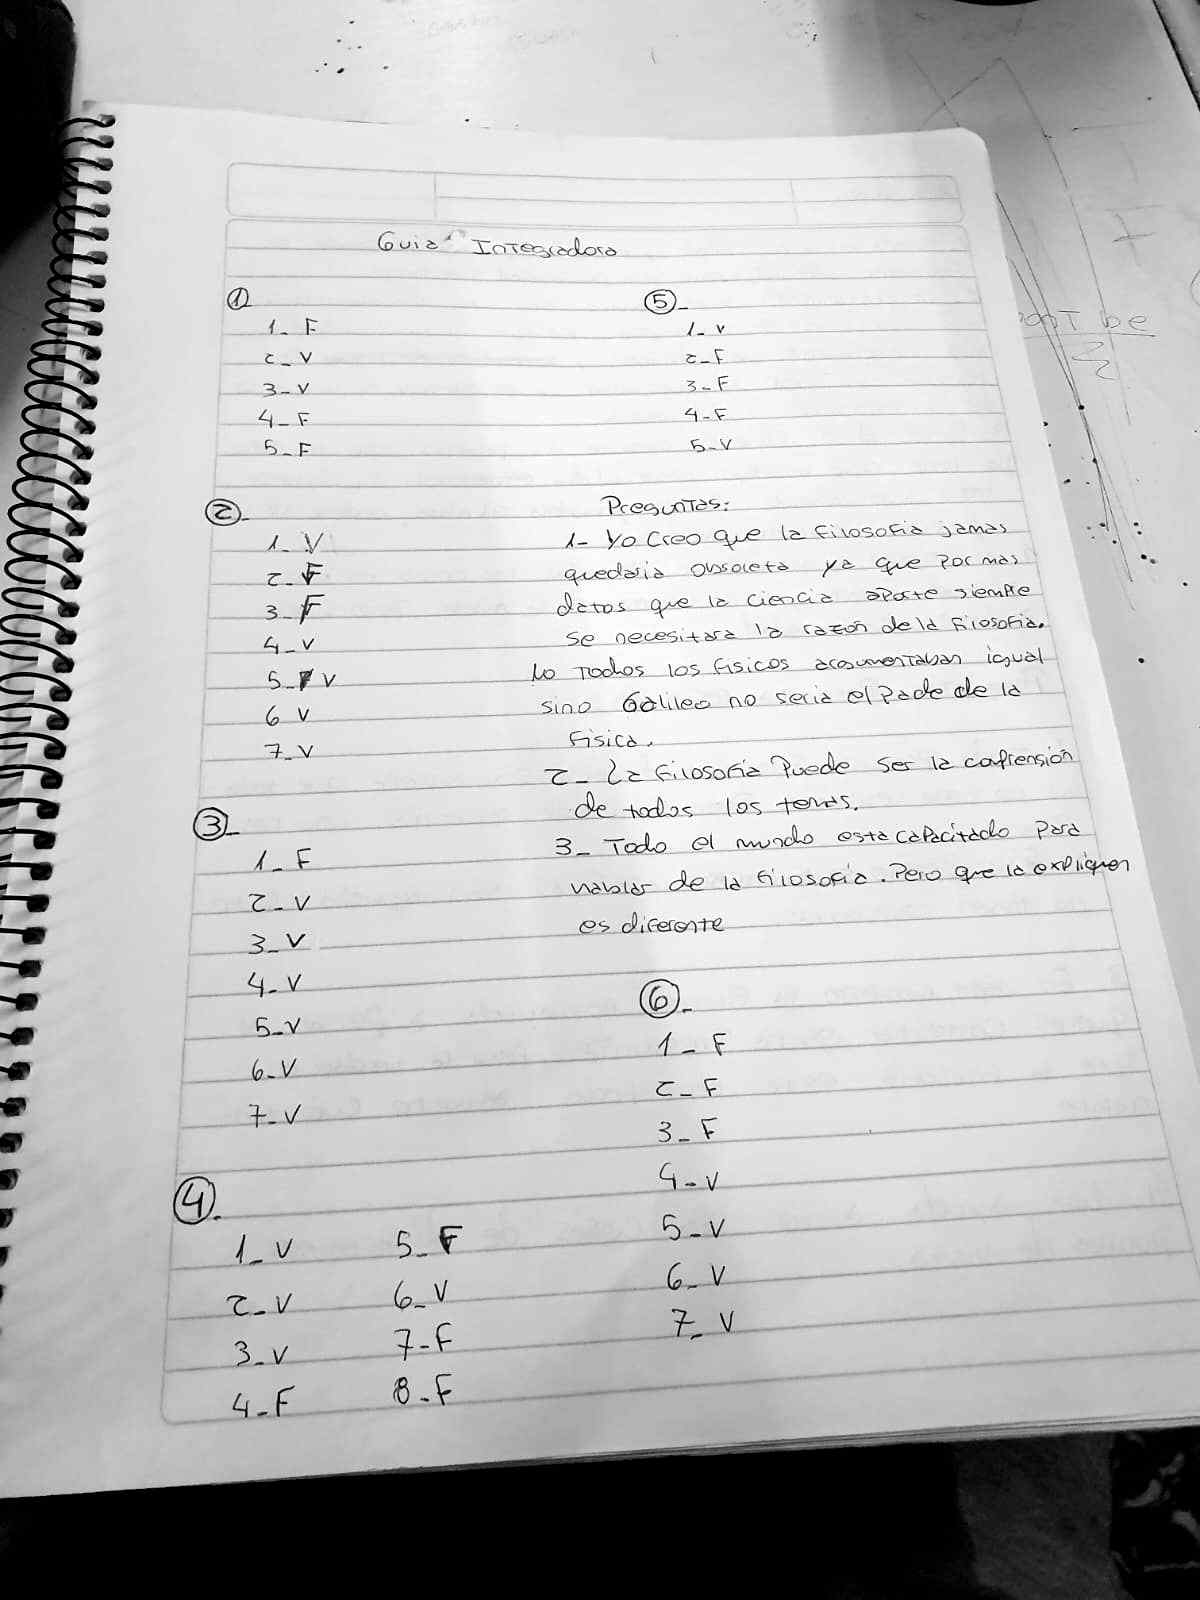 Guia Integradora
①
1_ F
2_ V
3_ V
4_ F
5_ F
②_
1_ V
2_ F
3_ F
4_ V
5_ V
6 V
7_ V
③_
1_ F
2_ V
3_ V
4_ V
5_ V
6_ V
7_ V
④.
1_ V
2_ V
3_ V
4_ F
5_ F
6_ V
7_ F
8_ F
⑤_
1_ V
2_ F
3_ F
4_ F
5_ V
Preguntas:
1_ Yo creo que la filosofia jamas
quedaria obsoleta ya que por mas
datos que la ciencia aporte siempre
se necesitara la razon de la filosofia.
No todos los fisicos argumentaban igual
sino Galileo no seria el Pade de la
fisica.
2_ La filosofia Puede ser la
de todos los temas.
3_ Todo el mundo esta capacitado para
hablar de la filosofia. Pero que la expliquen
es diferente
⑥_
1_ F
2_ F
3_ F
4_ V
5_ V
6_ V
7_ V
be